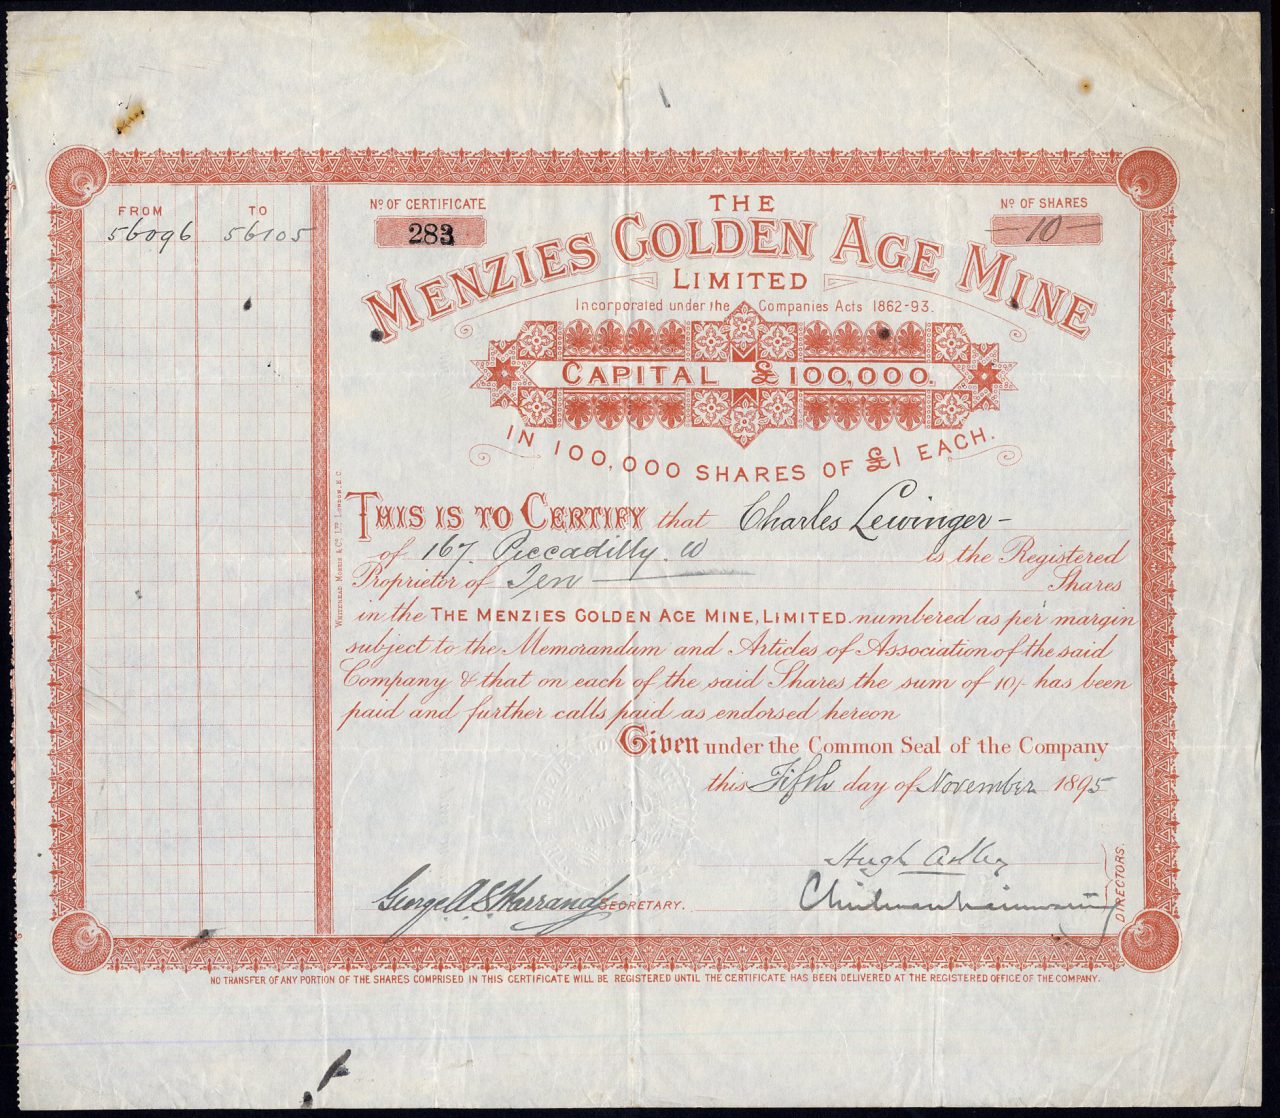 FROM TO
56096 56105
Nº OF CERTIFICATE
283
Nº OF SHARES
—10—
THE
MENZIES GOLDEN AGE MINE
LIMITED
Incorporated under the Companies Acts 1862-93.
CAPITAL £100,000.
IN 100,000 SHARES OF £1 EACH.
THIS IS TO CERTIFY that Charles Lewinger –
of 167. Piccadilly. W is the Registered
Proprietor of Ten Shares
in the THE MENZIES GOLDEN AGE MINE, LIMITED. numbered as per margin
subject to the Memorandum and Articles of Association of the said
Company & that on each of the said Shares the sum of 10/- has been
paid and further calls paid as endorsed hereon
Given under the Common Seal of the Company
this Fifth day of November 1895
Hugh
George A S
SECRETARY.
DIRECTORS.
WHITEHEAD MORRIS & Cº LTD LONDON. E.C.
NO TRANSFER OF ANY PORTION OF THE SHARES COMPRISED IN THIS CERTIFICATE WILL BE REGISTERED UNTIL THE CERTIFICATE HAS BEEN DELIVERED AT THE REGISTERED OFFICE OF THE COMPANY.